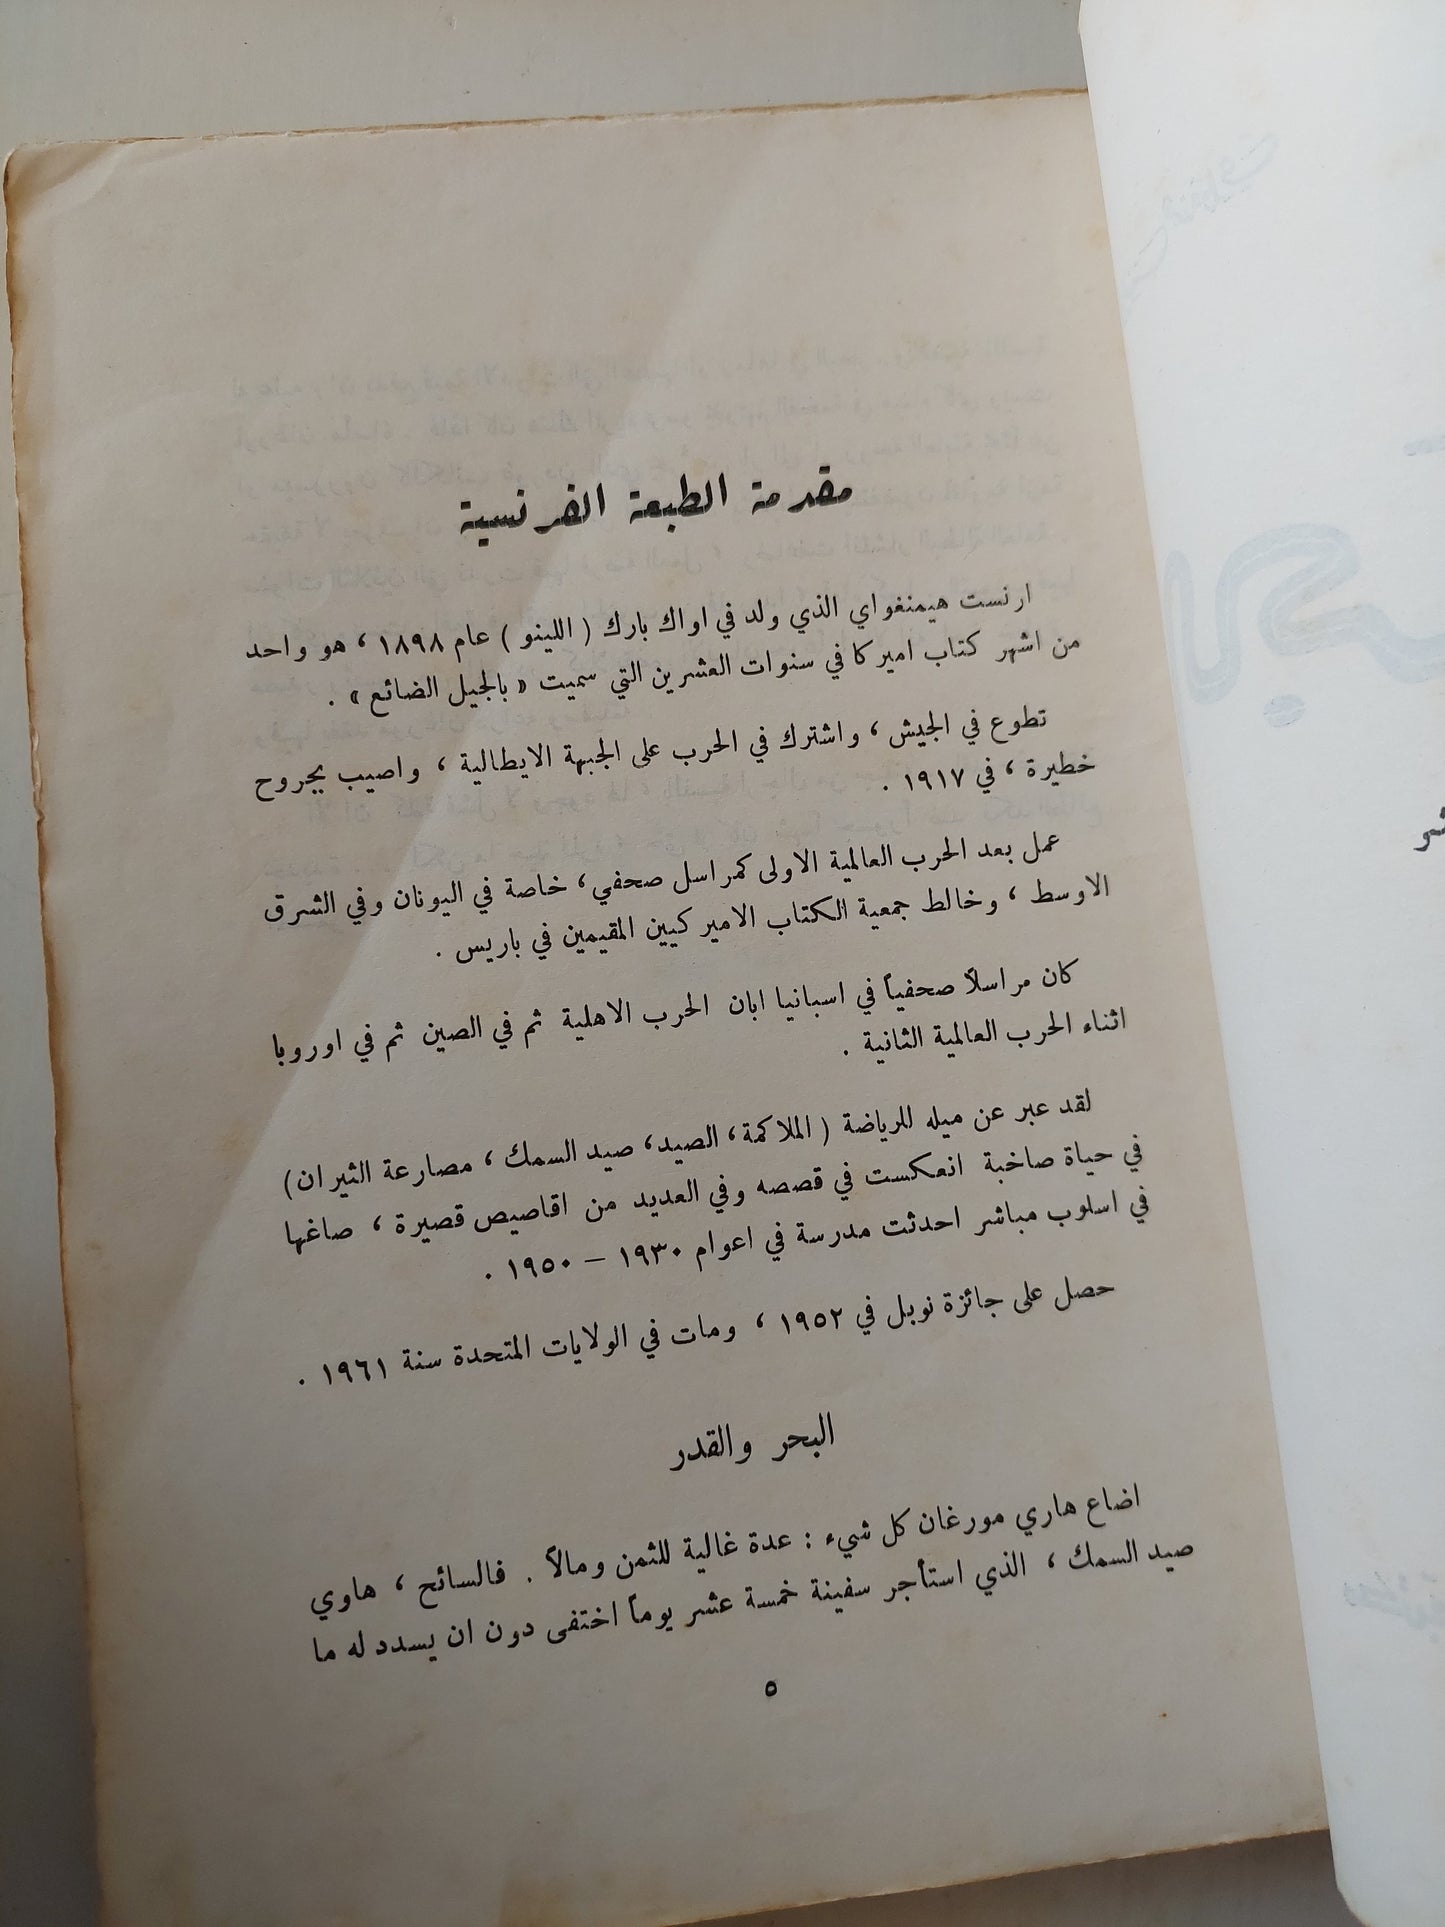 مقدمة الطبعة الفرنسية
ارنست هيمنغواي الذي ولد في اواك بارك ( اللينو ) عام ١٨٩٨ ، هو واحد
من اشهر كتاب اميركا في سنوات العشرين التي سميت « بالجيل الضائع » .
تطوع في الجيش ، واشترك في الحرب على الجبهة الايطالية ، واصيب بجروح
خطيرة ، في ١٩١٧ .
عمل بعد الحرب العالمية الاولى كمراسل صحفي ، خاصة في اليونان وفي الشرق
الاوسط ، وخالط جمعية الكتاب الاميركيين المقيمين في باريس .
كان مراسلاً صحفياً في اسبانيا ابان الحرب الاهلية ثم في الصين ثم في اوروبا
اثناء الحرب العالمية الثانية .
لقد عبر عن ميله للرياضة ( الملاكمة ، الصيد ، صيد السمك ، مصارعة الثيران )
في حياة صاخبة انعكست في قصصه وفي العديد من اقاصيص قصيرة ، صاغها
في اسلوب مباشر احدثت مدرسة في اعوام ١٩٣٠ – ١٩٥٠ .
حصل على جائزة نوبل في ١٩٥٢ ، ومات في الولايات المتحدة سنة ١٩٦١ .
البحر والقدر
اضاع هاري مورغان كل شيء : عدة غالية للثمن ومالاً . فالسائح ، هاوي
صيد السمك ، الذي استأجر سفينة خمسة عشر يوماً اختفى دون ان يسدد له ما
٥